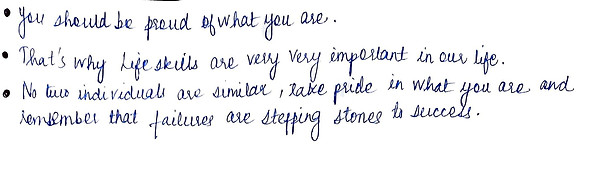 • You should be proud of what you are.
• That's why Life skills are very very important in our life.
• No two individuals are similar, take pride in what you are and
remember that failures are stepping stones to success.